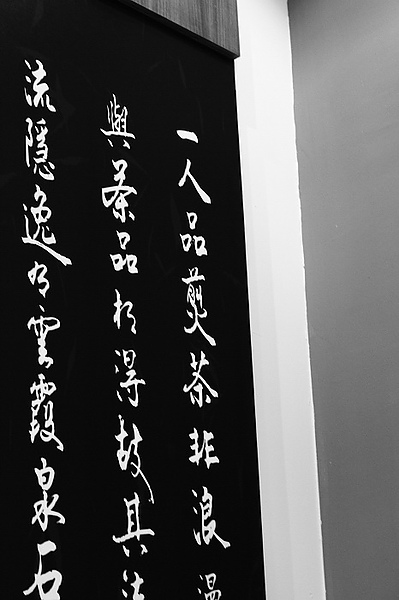 一人品煎茶非浪漫
與茶品相得故其法
流隱逸有雲霞泉石